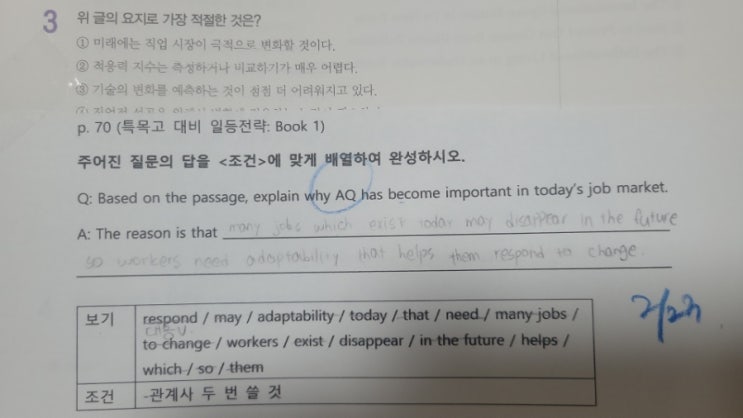 3 위 글의 요지로 가장 적절한 것은?
① 미래에는 직업 시장이 극적으로 변화할 것이다.
② 적응력 지수는 측정하거나 비교하기가 매우 어렵다.
③ 기술의 변화를 예측하는 것이 점점 더 어려워지고 있다.
p. 70 (특목고 대비 일등전략: Book 1)
주어진 질문의 답을 <조건>에 맞게 배열하여 완성하시오.
Q: Based on the passage, explain why AQ has become important in today's job market.
A: The reason is that many jobs which exist today may disappear in the future
so workers need adaptability that helps them respond to change.
보기 respond / may / adaptability / today / that / need / many jobs /
to change / workers / exist / disappear / in the future / helps /
which / so / them
조건 -관계사 두 번 쓸 것